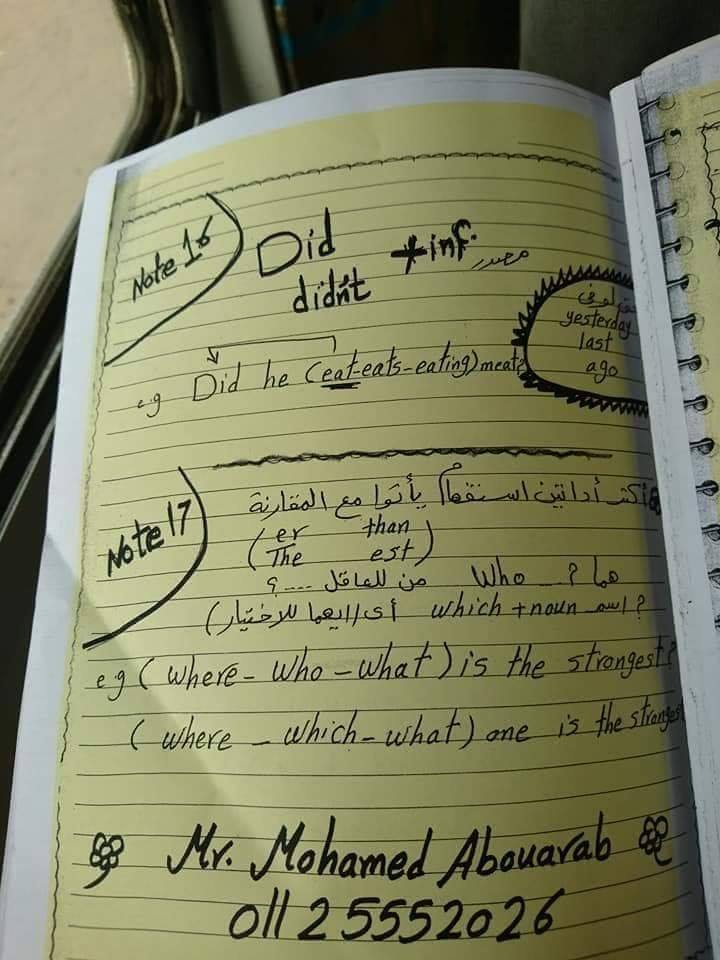 Note 16
Did
didn't
+inf. مصدر
yesterday
last
ago
e.g Did he (eat-eats-eating) meat?
Note 17
أكثر أداتين استفهام يأتوا مع المقارنة
(er than
The est)
هما Who ? من للعاقل ....؟
which +noun اسم ? أى/ايهما للاختيار)
e.g (where - who - what) is the strongest?
(where - which - what) one is the strongest
Mr. Mohamed Abouarab
01125552026